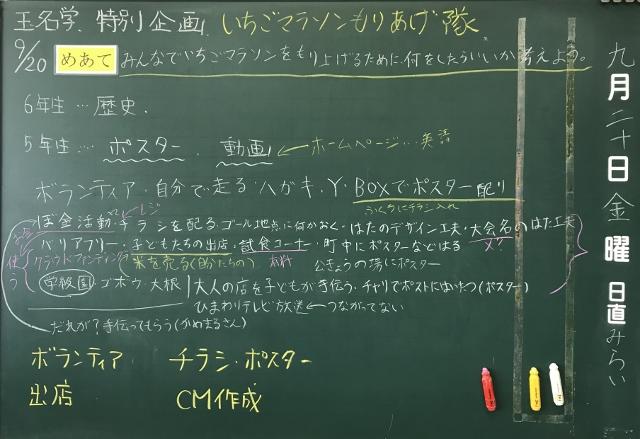 玉名学 特別企画 いちごマラソンもりあげ隊
9/20 めあて みんなでいちごマラソンをもり上げるために、何をしたらいいか考えよう。
6年生…歴史
5年生…ポスター 動画 ← ホームページ…英語
ボランティア・自分で走る ハガキ、Y・BOXでポスター配り
ぼ金活動・チラシを配る・ゴール地点に何かおく・はたのデザイン工夫・大会名のはた工夫
レジ
ふくろにチラシ入れ
バリアフリー・子どもたちの出店・試食コーナー・町中にポスターなどはる
使う
クラウドファンディング 米を売る(自分たちの) 有料 公きょうの場にポスター
学級園 ゴボウ 大根 大人の店を子どもが手伝う、チャリでポストに(ポスター)
ひまわりテレビ放送 ← つながってない
だれが?手伝ってもらう(かめまるさん)
ボランティア チラシ・ポスター
出店 CM作成
九月二十日金曜 日直みらい